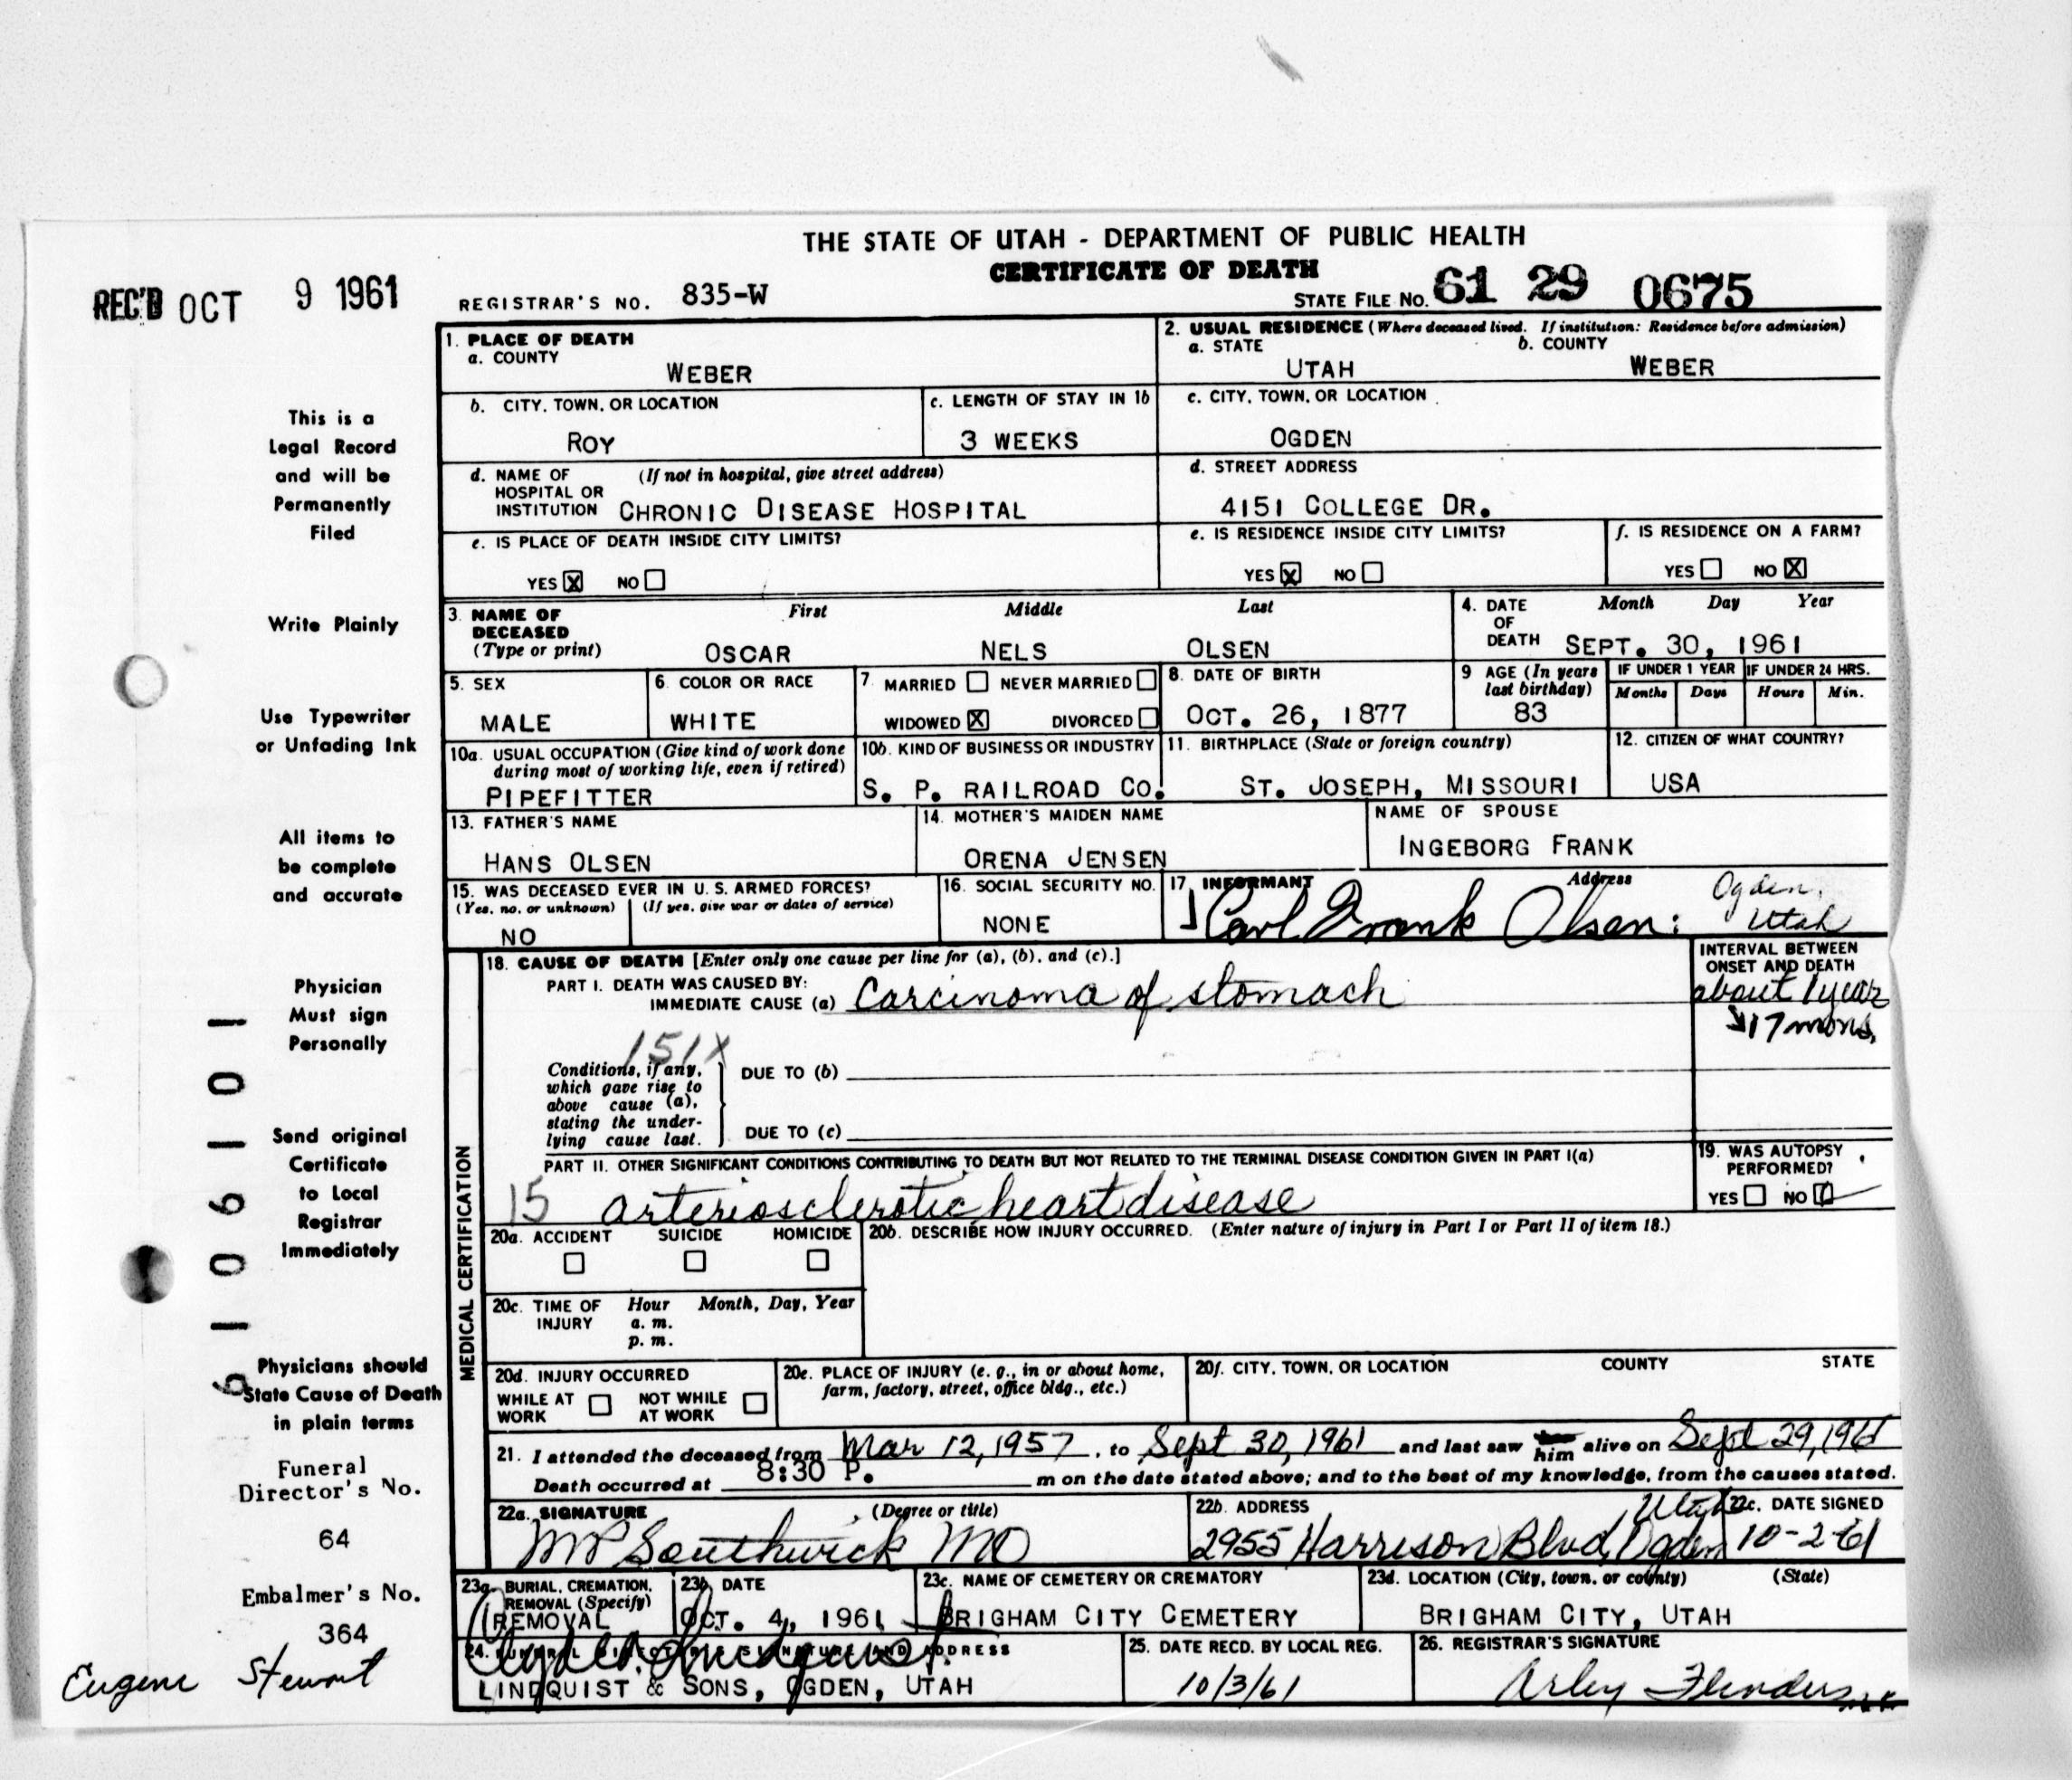 THE STATE OF UTAH - DEPARTMENT OF PUBLIC HEALTH
CERTIFICATE OF DEATH
REC'D OCT 9 1961
REGISTRAR'S NO. 835-W
STATE FILE NO. 61 29 0675
1. PLACE OF DEATH
a. COUNTY
WEBER
2. USUAL RESIDENCE (Where deceased lived. If institution: Residence before admission)
a. STATE b. COUNTY
UTAH WEBER
b. CITY, TOWN, OR LOCATION
ROY
c. LENGTH OF STAY IN 1b
3 WEEKS
c. CITY, TOWN, OR LOCATION
OGDEN
d. NAME OF (If not in hospital, give street address)
HOSPITAL OR
INSTITUTION CHRONIC DISEASE HOSPITAL
d. STREET ADDRESS
4151 COLLEGE DR.
e. IS PLACE OF DEATH INSIDE CITY LIMITS?
YES X NO
e. IS RESIDENCE INSIDE CITY LIMITS?
YES X NO
f. IS RESIDENCE ON A FARM?
YES NO X
3. NAME OF First Middle Last
DECEASED
(Type or print) OSCAR NELS OLSEN
4. DATE Month Day Year
OF
DEATH SEPT. 30, 1961
5. SEX
MALE
6. COLOR OR RACE
WHITE
7. MARRIED NEVER MARRIED
WIDOWED X DIVORCED
8. DATE OF BIRTH
OCT. 26, 1877
9 AGE (In years
last birthday)
83
IF UNDER 1 YEAR IF UNDER 24 HRS.
Months Days Hours Min.
10a. USUAL OCCUPATION (Give kind of work done
during most of working life, even if retired)
PIPEFITTER
10b. KIND OF BUSINESS OR INDUSTRY
S. P. RAILROAD CO.
11. BIRTHPLACE (State or foreign country)
ST. JOSEPH, MISSOURI
12. CITIZEN OF WHAT COUNTRY?
USA
13. FATHER'S NAME
HANS OLSEN
14. MOTHER'S MAIDEN NAME
ORENA JENSEN
NAME OF SPOUSE
INGEBORG FRANK
15. WAS DECEASED EVER IN U. S. ARMED FORCES?
(Yes, no, or unknown) (If yes, give war or dates of service)
NO
16. SOCIAL SECURITY NO.
NONE
17. INFORMANT Address
Carl Frank Olsen: Ogden,
Utah
MEDICAL CERTIFICATION
18. CAUSE OF DEATH [Enter only one cause per line for (a), (b), and (c).]
PART I. DEATH WAS CAUSED BY:
IMMEDIATE CAUSE (a) Carcinoma of stomach
INTERVAL BETWEEN
ONSET AND DEATH
about 1 year
17 mons.
151X
Conditions, if any,
which gave rise to
above cause (a),
stating the under-
lying cause last.
DUE TO (b)
DUE TO (c)
PART II. OTHER SIGNIFICANT CONDITIONS CONTRIBUTING TO DEATH BUT NOT RELATED TO THE TERMINAL DISEASE CONDITION GIVEN IN PART I(a)
15 arteriosclerotic heart disease
19. WAS AUTOPSY
PERFORMED?
YES NO
20a. ACCIDENT SUICIDE HOMICIDE
20b. DESCRIBE HOW INJURY OCCURRED. (Enter nature of injury in Part I or Part II of item 18.)
20c. TIME OF Hour Month, Day, Year
INJURY a. m.
p. m.
20d. INJURY OCCURRED
WHILE AT NOT WHILE
WORK AT WORK
20e. PLACE OF INJURY (e. g., in or about home,
farm, factory, street, office bldg., etc.)
20f. CITY, TOWN, OR LOCATION COUNTY STATE
21. I attended the deceased from Mar 12, 1957, to Sept 30, 1961 and last saw him alive on Sept 29, 1961
Death occurred at 8:30 P. m on the date stated above; and to the best of my knowledge, from the causes stated.
22a. SIGNATURE (Degree or title)
MP Southwick MD
22b. ADDRESS
2955 Harrison Blvd, Ogden Utah
22c. DATE SIGNED
10-2-61
23a. BURIAL, CREMATION,
REMOVAL (Specify)
REMOVAL
23b. DATE
OCT. 4, 1961
23c. NAME OF CEMETERY OR CREMATORY
BRIGHAM CITY CEMETERY
23d. LOCATION (City, town, or county) (State)
BRIGHAM CITY, UTAH
24. ADDRESS
LINDQUIST & SONS, OGDEN, UTAH
25. DATE RECD. BY LOCAL REG.
10/3/61
26. REGISTRAR'S SIGNATURE
Arley Flinders
This is a
Legal Record
and will be
Permanently
Filed
Write Plainly
Use Typewriter
or Unfading Ink
All items to
be complete
and accurate
Physician
Must sign
Personally
Send original
Certificate
to Local
Registrar
Immediately
Physicians should
State Cause of Death
in plain terms
Funeral
Director's No.
64
Embalmer's No.
364
Eugene Stewart